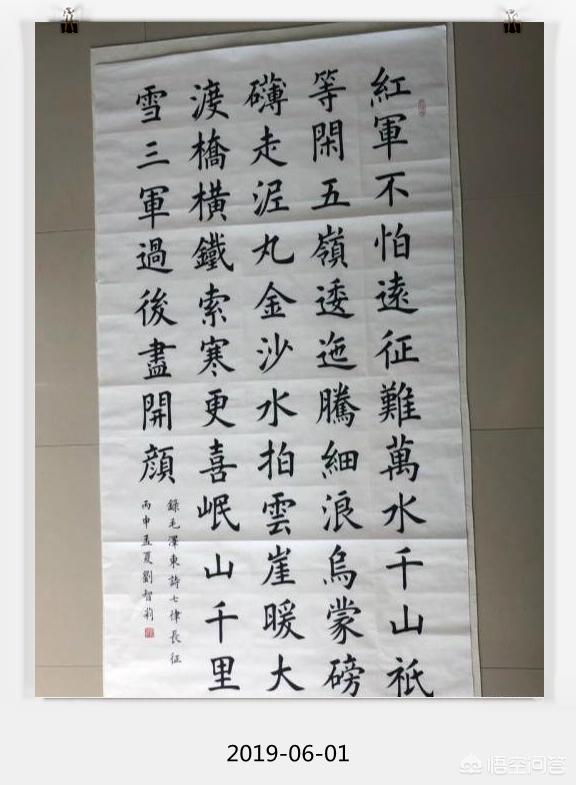 紅軍不怕遠征難萬水千山祇
等閑五嶺逶迤騰細浪烏蒙磅
礴走泥丸金沙水拍雲崖暖大
渡橋橫鐵索寒更喜岷山千里
雪三軍過後盡開顏
錄毛澤東詩七律長征
丙申孟夏劉智莉
2019-06-01
悟空问答